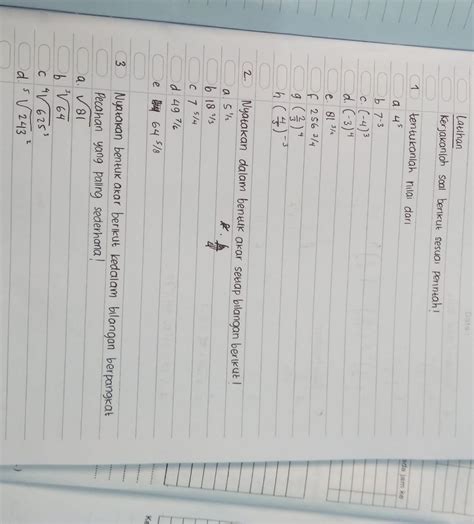 Latihan
Kerjakanlah soal berikut sesuai perintah!
1. tentukanlah nilai dari
a 4⁵
b 7⁻³
c (-4)³
d (-3)⁴
e 81 ³/⁴
f 256 ²/⁴
g (2/3)⁴
h (4/5)⁻³
2. Nyatakan dalam bentuk akar setiap bilangan berikut!
a 5 ½
b 18 ²/³
c 7 ⁵/⁴
d 49 ⁷/⁶
e 64 ⁵/⁸
3 Nyatakan bentuk akar berikut kedalam bilangan berpangkat
Pecahan yang paling sederhana!
a √81
b ³√64
c ⁴√625³
d ⁵√243²